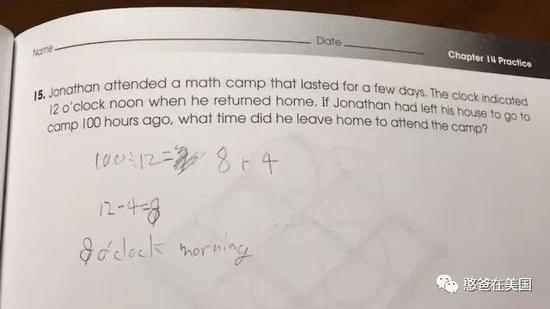 Name
Date
Chapter 14 Practice
15. Jonathan attended a math camp that lasted for a few days. The clock indicated
12 o'clock noon when he returned home. If Jonathan had left his house to go to
camp 100 hours ago, what time did he leave home to attend the camp?
100÷12= 8 r 4
12-4=8
8 o'clock morning
憨爸在美国